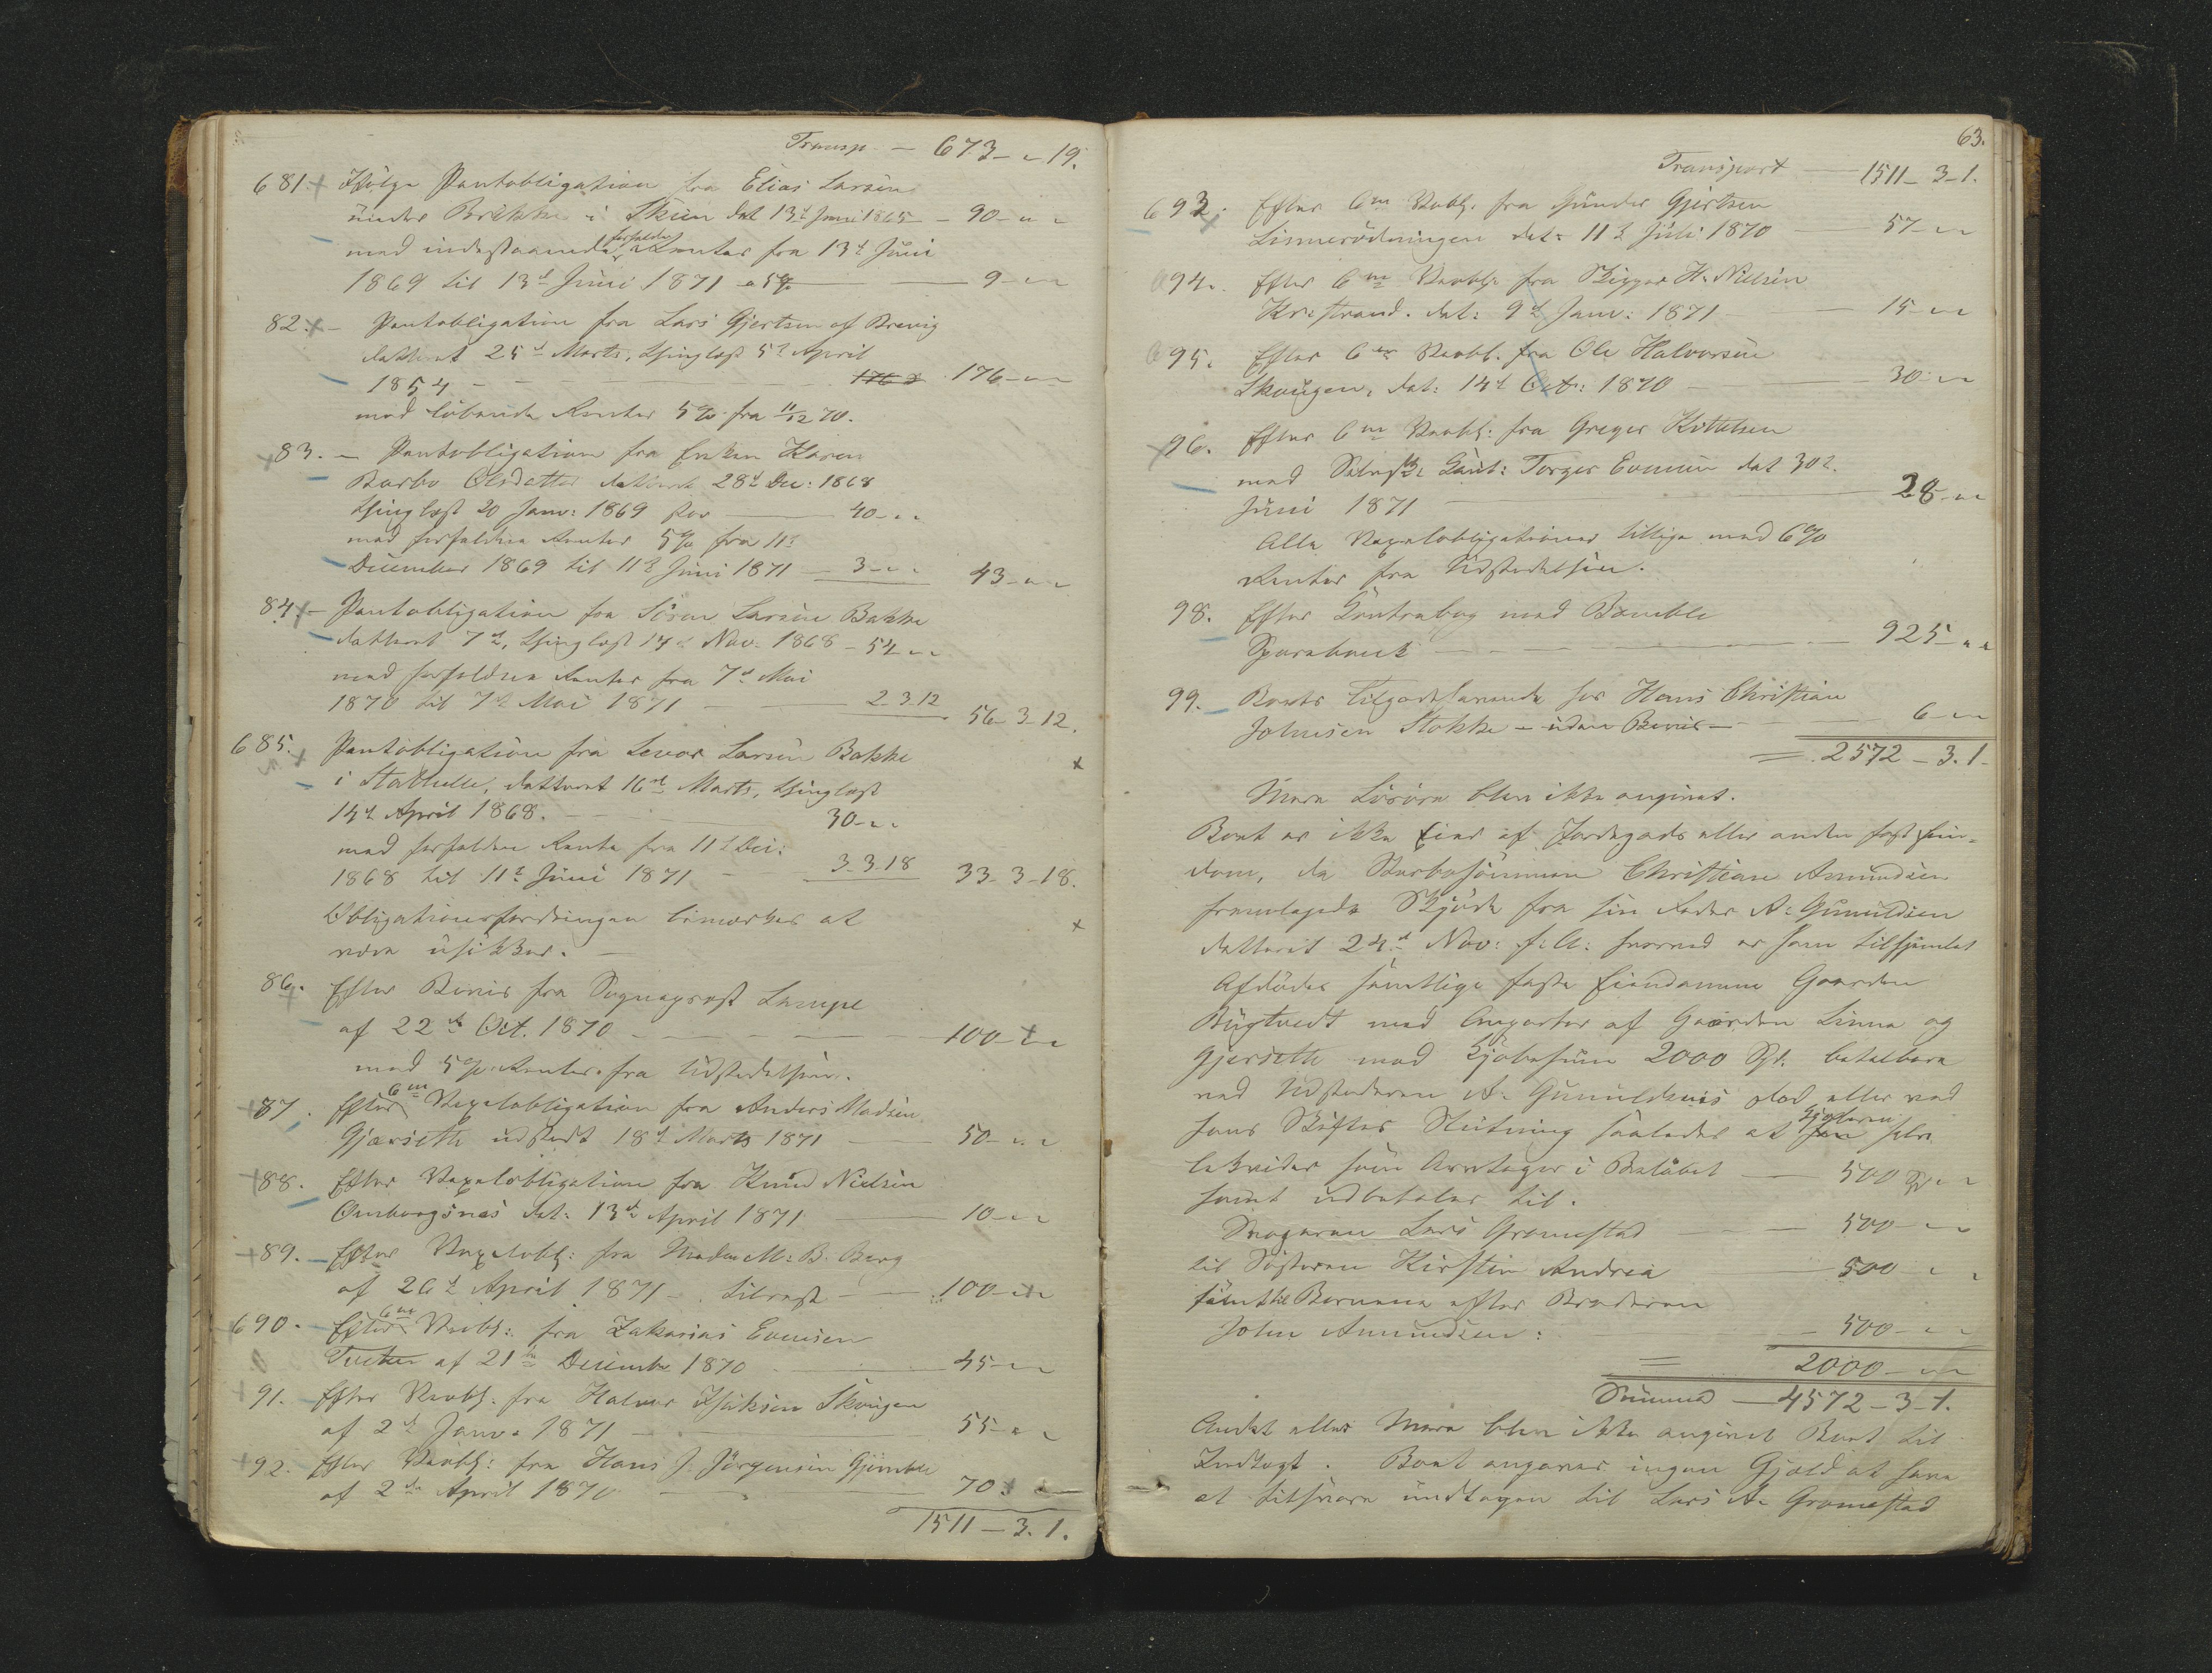 Transp. — 673 - " - 19.
681. Ifølge Pantobligation fra Elias Larsen
under Brekke i Skien dat 13d Juni 1865 — 90 - " "
med indestaaende forfaldne Renter fra 13d Juni
1869 til 13d Juni 1871 a 5% — 9 - " "
82. — Pantobligation fra Lars Gjertsen af Brevig
datteret 25d Marts, thinglæst 5d April
1854 — 176 - " "
med løbende Renter 5% fra 11/12 70.
83. — Pantobligation fra Enken Karen
Barbo Olsdatter datteret 28d Dec: 1868
thinglæst 20 Janv: 1869 stor — 40 - " "
med forfaldne Renter 5% fra 11d
December 1869 til 11d Juni 1871 — 3 - " " 43 - " "
84. — Pantobligation fra Søren Larsen Bakke
datteret 7de, thinglæst 14d Nov. 1868 — 54 " "
med forfaldne Renter fra 7d Mai
1870 til 7d Mai 1871 — 2. 3. 12 56 - 3 - 12.
685. Pantobligation fra Levor Larsen Bakke
i Stathelle, datteret 16de Marts, thinglæst
14d April 1868. — 30 - " "
med forfaldne Rente fra 11d Dec:
1868 til 11d Juni 1871 — 3. 3. 18 33 - 3 - 18.
Obligationsfordringen bemærkes at
være usikker. —
86. Efter Bevis fra Sognepræst Lampe
af 22de Oct. 1870 — 100 - " "
med 5% Renter fra Udstedelsen.
87. Efter 6m Vexelobligation fra Anders Madsen
Gjærseth udstedt 18d Marts 1871 — 50 - " "
88. Efter Vexelobligation fra Knud Nielsen
Omborgsnes dat: 13de April 1871 — 10 - " "
89. — Efter Vexelobl: fra Madm M: B. Berg
af 26d April 1871 — tilrest — 100 - " "
690. Efter 6m Vexlobl: fra Zakarias Evensen
Tveten af 21de December 1870 — 45 - " "
91. Efter Vexobl. fra Halvor Isaksen Skougen
af 2de Janv. 1871 — 55 - " "
92. Efter Vexobl: fra Hans J. Jørgensen Gjømle
af 2de April 1870 — 70 : "
1511 — 3. 1.
63.
Transport — 1511 - 3 - 1.
693. Efter 6m Vexobl. fra Gunder Gjertsen
Linnerødningen dat: 11d Juli 1870 — 57 - " "
94. Efter 6m Vexobl. fra Skipper H. Nielsen
Kr: strand. dat: 9d Janv: 1871 — 15 - " "
95. Efter 6m Vexobl. fra Ole Halvorsen
Skougen, dat: 14d Oct: 1870 — 30 - " "
96. Efter 6m Vexobl: fra Greger Kittelsen
med Selvsk: Caut: Torger Evensen dat 30d.
Juni 1871 — 28 - " "
Alle Vexelobligationer tillige med 6%
Renter fra Udstedelsen.
98. Efter Contrabog med Bamble
Sparebank — 925 - " "
99. Boets Tilgodehavende hos Hans Christian
Johnsen Stokke — uden Bevis — 6 - " "
= 2572 - 3. 1.
Mere Løsøre blev ikke angivet.
Boet er ikke Eier af Jordegods eller anden fast Eien=
dom, da Sterbosønnen Christian Amundsen
fremlagde Skjøde fra sin Fader A: Gunuldsen
datteret 24d Nov: f: A: hvorved er ham tilskjødet
Afdødes samtlige faste Eiendomme Gaarden
Bugtvedt med Anparter af Gaarden Linna og
Gjerseth mod Kjøbesum 2000 Spd. betalbare
ved Udstederen A. Gunuldsens død eller ved
hans Skiftes Slutning saaledes at Kjøberen selv
lekvider som Arvetager i Beløbet — 500 Spd " "
samt udbetaler til.
Svogeren Lars Gromstad — 500 - " "
til Søsteren Kirstin Andrea — 500 " "
samt til Børnene efter Broderen
John Amundsen: — 500 - " "
= 2000 - " "
Summa — 4572 - 3 - 1.
Andet eller Mere blev ikke angivet Boet til
Indtægt. Boet angaves ingen Gjæld at have
at tilsvare undtagen til Lars A. Gromstad